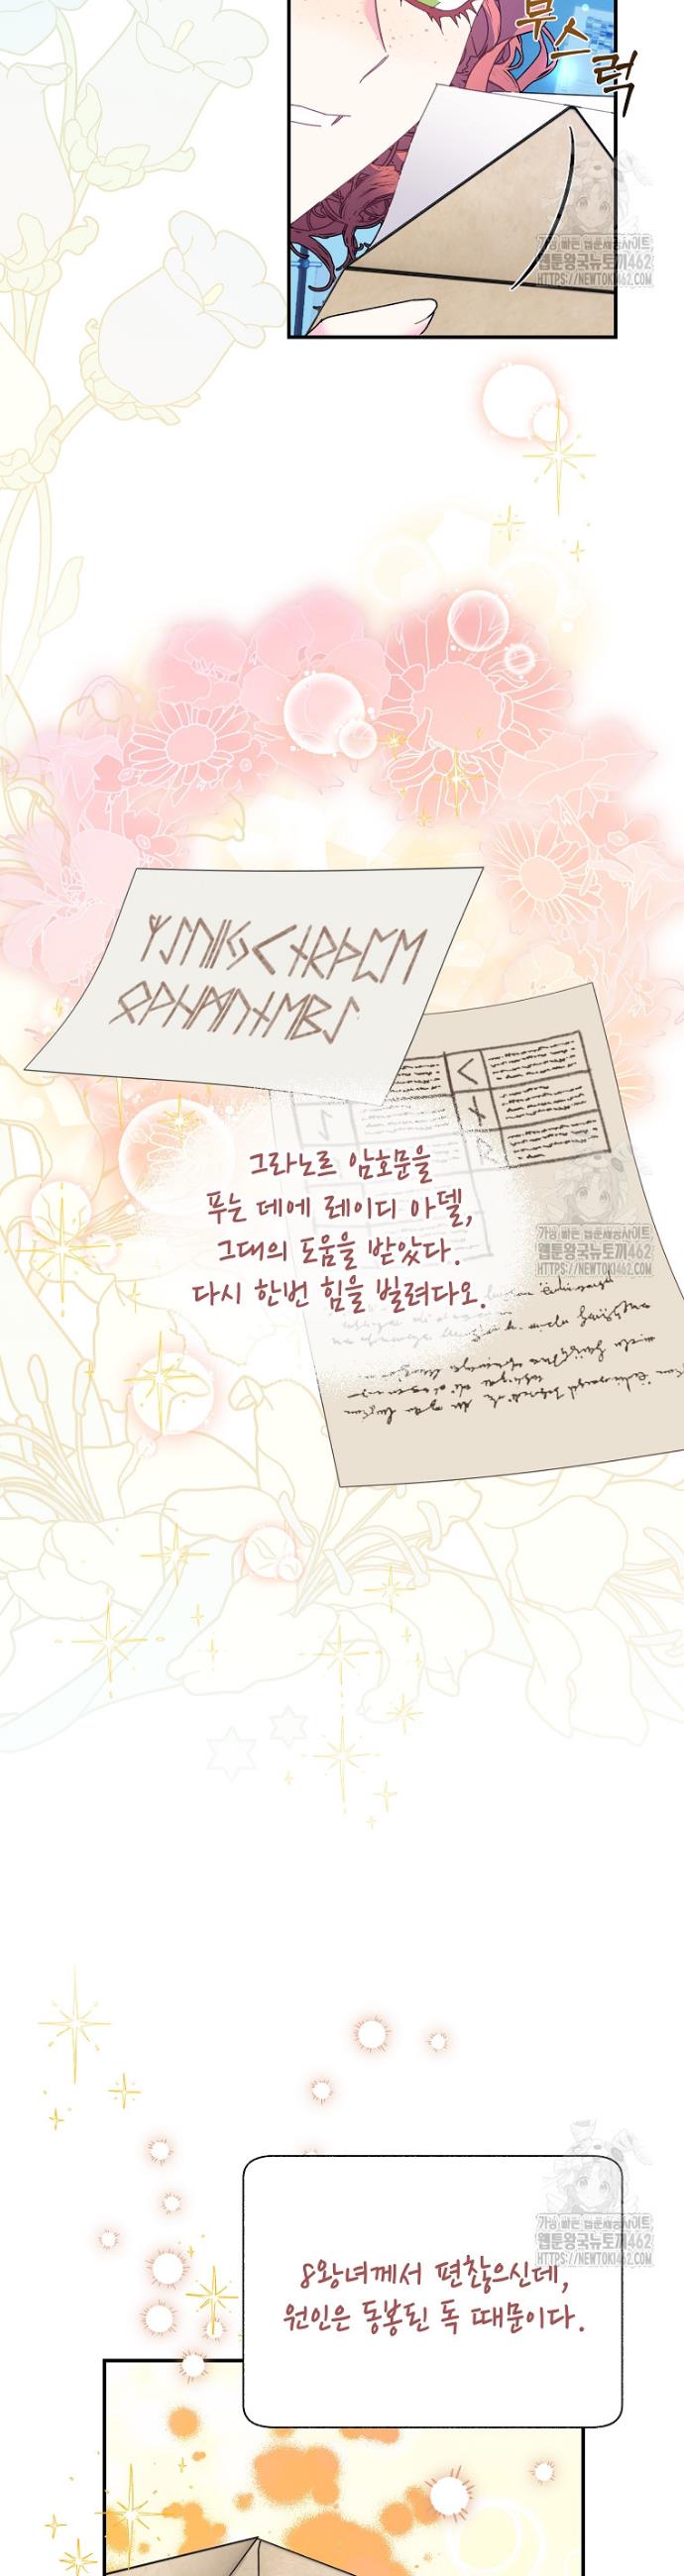 부스럭
가장 빠른 웹툰제공사이트
웹툰왕국뉴토끼462
HTTPS://NEWTOKI462.COM
그라노르 암호문을
푸는 데에 레이디 아델,
그대의 도움을 받았다.
다시 한번 힘을 빌려다오.
가장 빠른 웹툰제공사이트
웹툰왕국뉴토끼462
HTTPS://NEWTOKI462.COM
8왕녀께서 편찮으신데,
원인은 동봉된 독 때문이다.
가장 빠른 웹툰제공사이트
웹툰왕국뉴토끼462
HTTPS://NEWTOKI462.COM